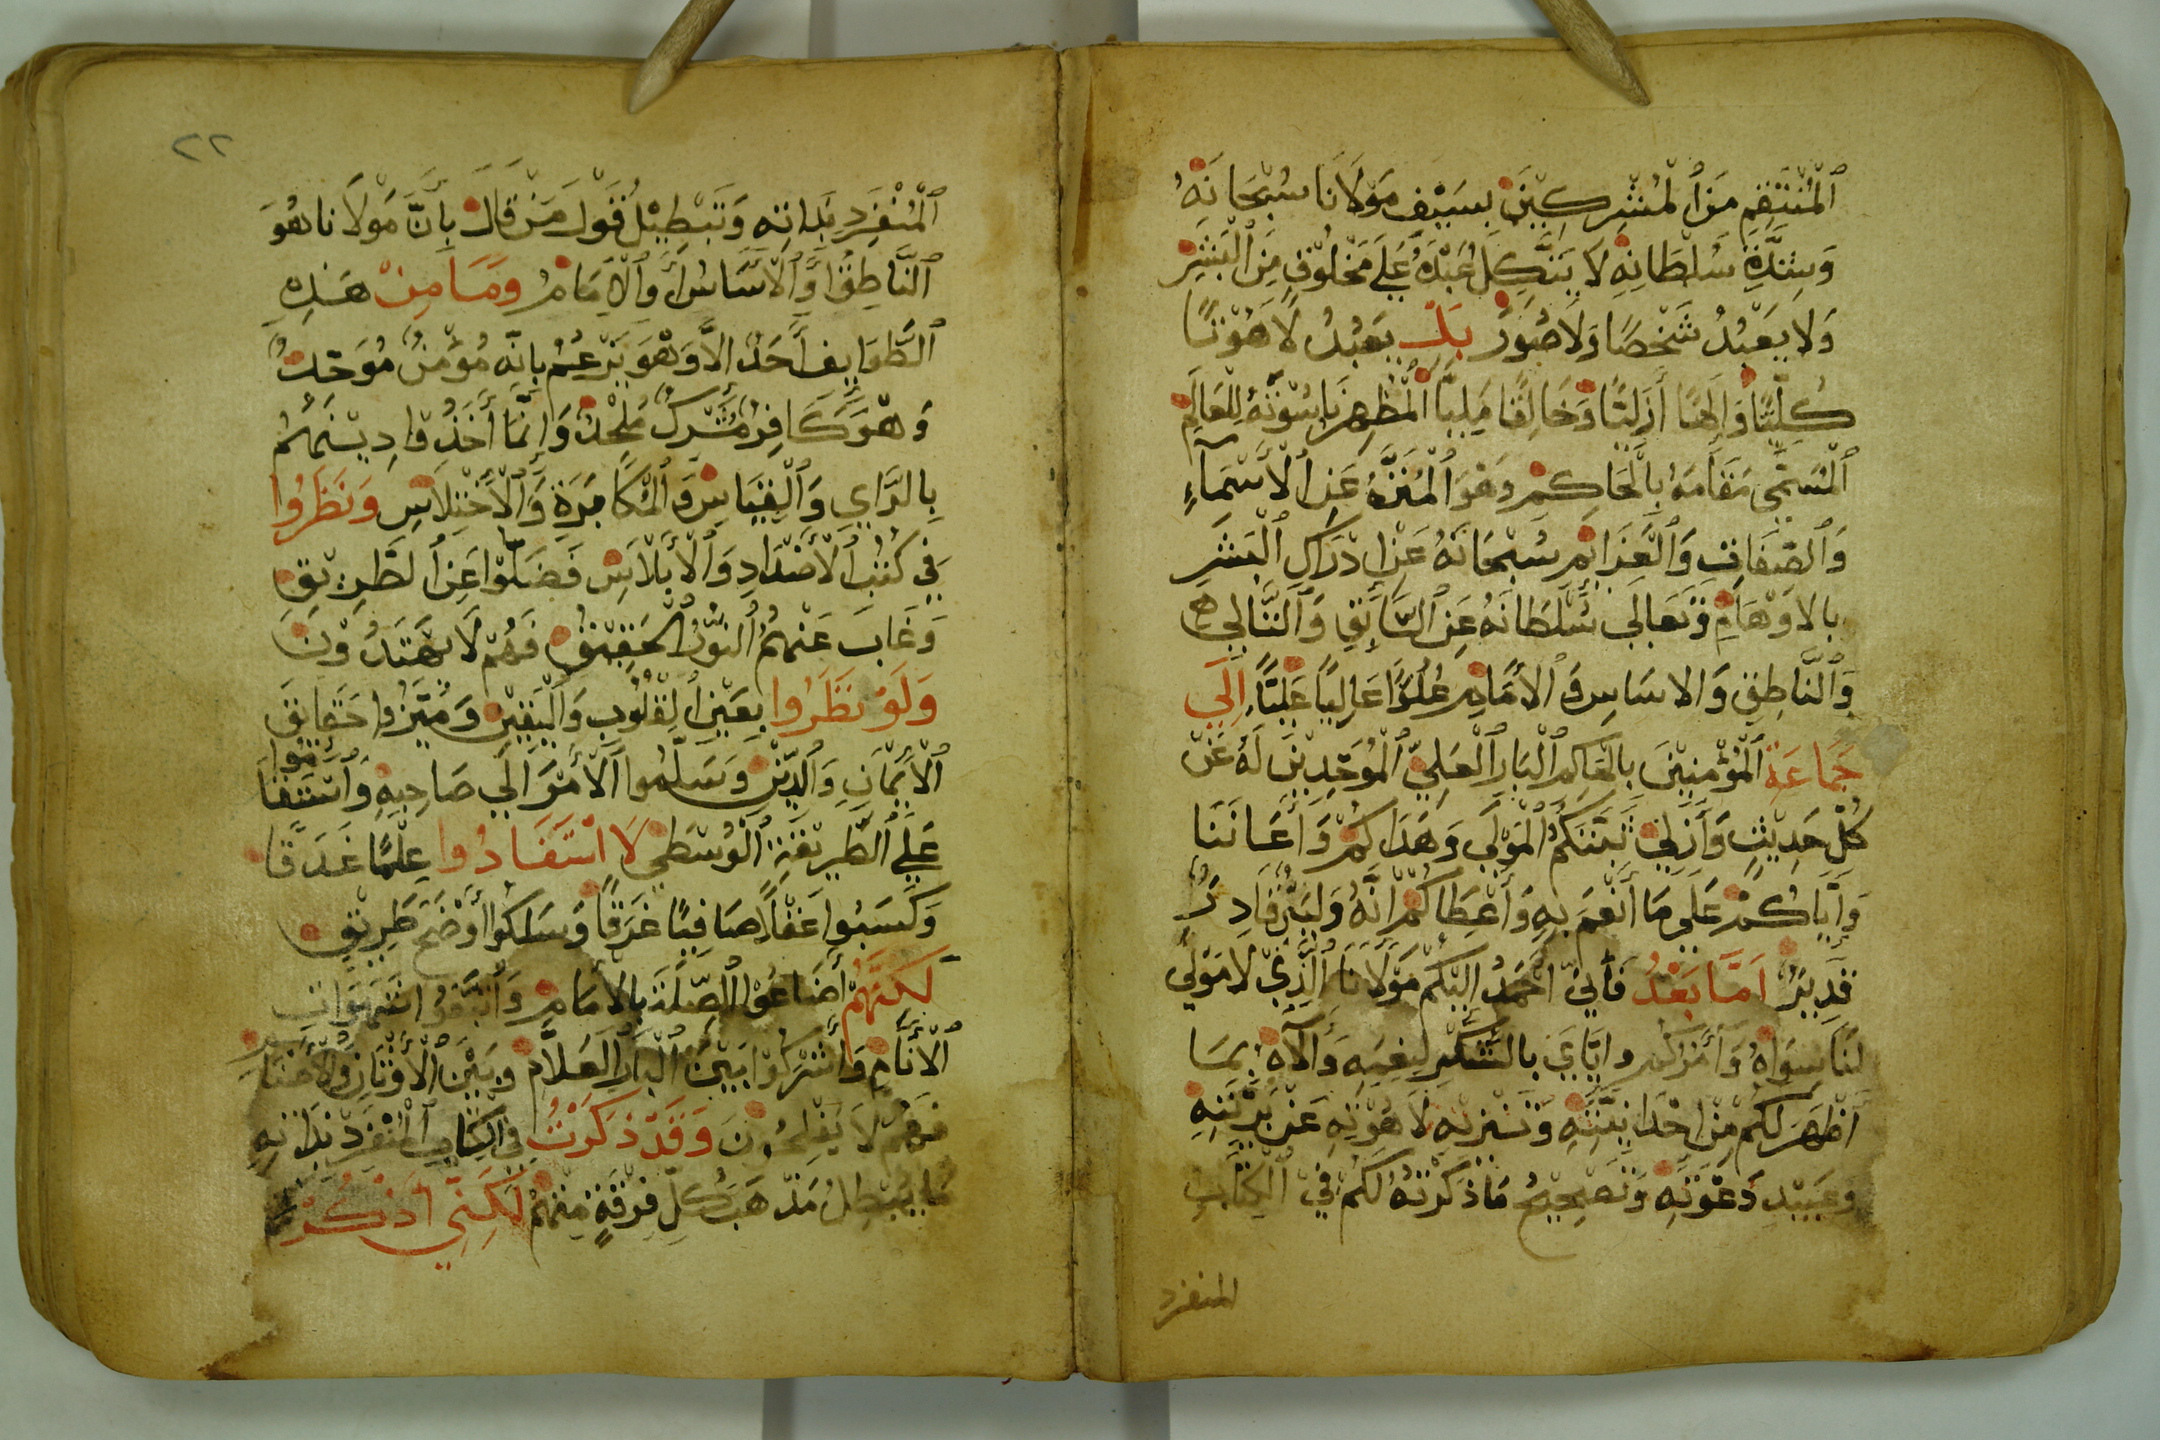 ٱلْمُنْتَقِمِ مِنَ ٱلْمُشْرِكِيْنَ بِسَيْفِ مَوْلَانَا سُبْحَانَهُ
وَشِدَّةِ سُلْطَانِهِ لَا يَتَّكِلُ عَبْدُهُ عَلَي مَخْلُوْقٍ مِنَ ٱلْبَشَرِ
وَلَا يَعْبُدُ شَخْصًا وَلَا صُوَرْ بَلْ يَعْبُدُ لَاهُوْتًا
كُلِّيًّا وَإِلَهًا أَزَلِيًّا وَخَالِقًا ٱلْمُظْهِرَ نَاسُوْتَهُ لِلْعَالَمِ
ٱلْمُسَمَّى مَقَامَهُ بِالْحَاكِمْ وَهُوَ ٱلْمُنَزَّهُ عَنِ ٱلْأَسْمَآءِ
وَٱلصِّفَاتِ سُبْحَانَهُ عَنْ اِدْرَاكِ ٱلْبَشَرِ
بِالاَوْهَامِ وَتَعَالَى سُلْطَانَهُ عَنِ ٱلسَّابِقِ وَٱلتَّالِي
وَٱلنَّاطِقِ وَالاسَاسِ وَٱلْأمَامِ عُلُوًّا عَالِيًا عَلِيًّا إِلَي
جَمَاعَةِ ٱلْمُؤْمِنِيْنَ بِالْحَاكِمِ ٱلْبَارِ ٱلْعَلِيّ ٱلْمُوَحِّدِيْنَ لَهُ عَنْ
كُلِّ حَدِيْثٍ وَأَزَلِيْ ثَبَّتَكُمُ ٱلْمَوْلَى وَهَدَاكُمْ وَأَعَانَنَا
وَإِيَّاكُمْ عَلَي مَا أَنْعَمَ بِهِ وَأَعْطَاكُمْ اِنَّهُ وَلِيٌّ قَادِرٌ
قَدِيْرٌ اَمَّا بَعْدُ فَأَنِّيْ اَحْمَدُ اِلَيْكُمْ مَوْلَانَا ٱلَّذِيْ لَا مَوْلَى
لَنَا سِوَاهُ وَآمُرُكُمْ وَايَّايَ بِالشُّكْرِ لِنِعَمِهِ وَآلَآهُ بِمَا
أَظْهَرَ لَكُمْ مِنْ وَحْدَانِيَّتِهِ وَتَنْزِيْهِ لَاهُوْتِهِ عَنْ بَرِيَّتِهِ
وَعَبِيْدِ دَعْوَتِهِ وَتَصْحِيْحُ مَا ذَكَرْتُهُ لَكُمْ فِيْ ٱلْكِتَابِ
المنفرد
٢٢
ٱلْمُنْفَرِدِ بِذَاتِهِ وَتَبْطِيْلُ قَوْلَ مَنْ قَالَ بِأَنَّ مَوْلَانَا هُوَ
ٱلنَّاطِقُ وَٱلْأَسَاسُ وَٱلْإِمَامُ وَمَا مِنْ هَذِهِ
ٱلطَّوَايِفِ أَحَدْ الَّا وَهُوَ يَزْعُمُ بِانَّهِ مُؤْمِنٌ مُوَحِّدٌ
وَهُوَ كَافِرٌ مُشْرِكٌ مُلْحِدٌ وَاِنَّمَا أَخَذُوْا دِيْنَهُمْ
بِالرَّايِ وَالْقِيَاسِ وَٱلْمُكَابَرَةِ وَٱلْأَخْتِلَاسِ وَنَظَرُوا
فِي كُتُبِ ٱلْأَضْدَادِ وَٱلْأَبْلَاسِ فَضَلُّوا عَنِ ٱلطَّرِيْقِ
وَغَابَ عَنْهُمُ ٱلنُّوْرُ ٱلْحَقِيْقُ فَهُمْ لَا يَهْتَدُوْنَ
وَلَوْ نَظَرُوا بِعَيْنِ ٱلْقُلُوْبِ وَٱلْيَقِيْنِ وَمَيَّزُوا حَقَايِقَ
ٱلْأَيْمَانِ وَٱلدِّيْنِ وَسَلَّمُوا ٱلْأَمْرَ اِلَى صَاحِبِهِ وَٱسْتَقَامُوا
عَلَي ٱلطَّرِيْقَةِ ٱلْوُسْطَى لَاسْتَفَادُوا عِلْمًا غَدَقًا
وَكَسَبُوا عَقْلًا صَافِيًا غَرَقًا وَسَلَكُوا أَوْضَحَ طَرِيْقٍ
لَكِنَّهُمْ أَضَاعُوْا ٱلصِّلَةَ بِالأمَامِ وَٱتَّبَعُوْا شَهَوَاتِ
ٱلْأَنَامِ وَأَشْرَكُوْا بَيْنَ ٱلْبَارِ ٱلْعَلَّامِ وَبَيْنَ ٱلْأَوْثَانِ وَٱلْأَصْنَامِ
فَهُمْ لَا يُفْلِحُوْنَ وَقَدْ ذَكَرْتُ فِي ٱلْكِتَابِ ٱلْمُنْفَرِدْ بِذَاتِهِ
مَا يُبْطِلُ مَذْهَبَ كُلِّ فِرْقَةٍ مِنْهُمْ لَكِنِّي أَذْكُرْ